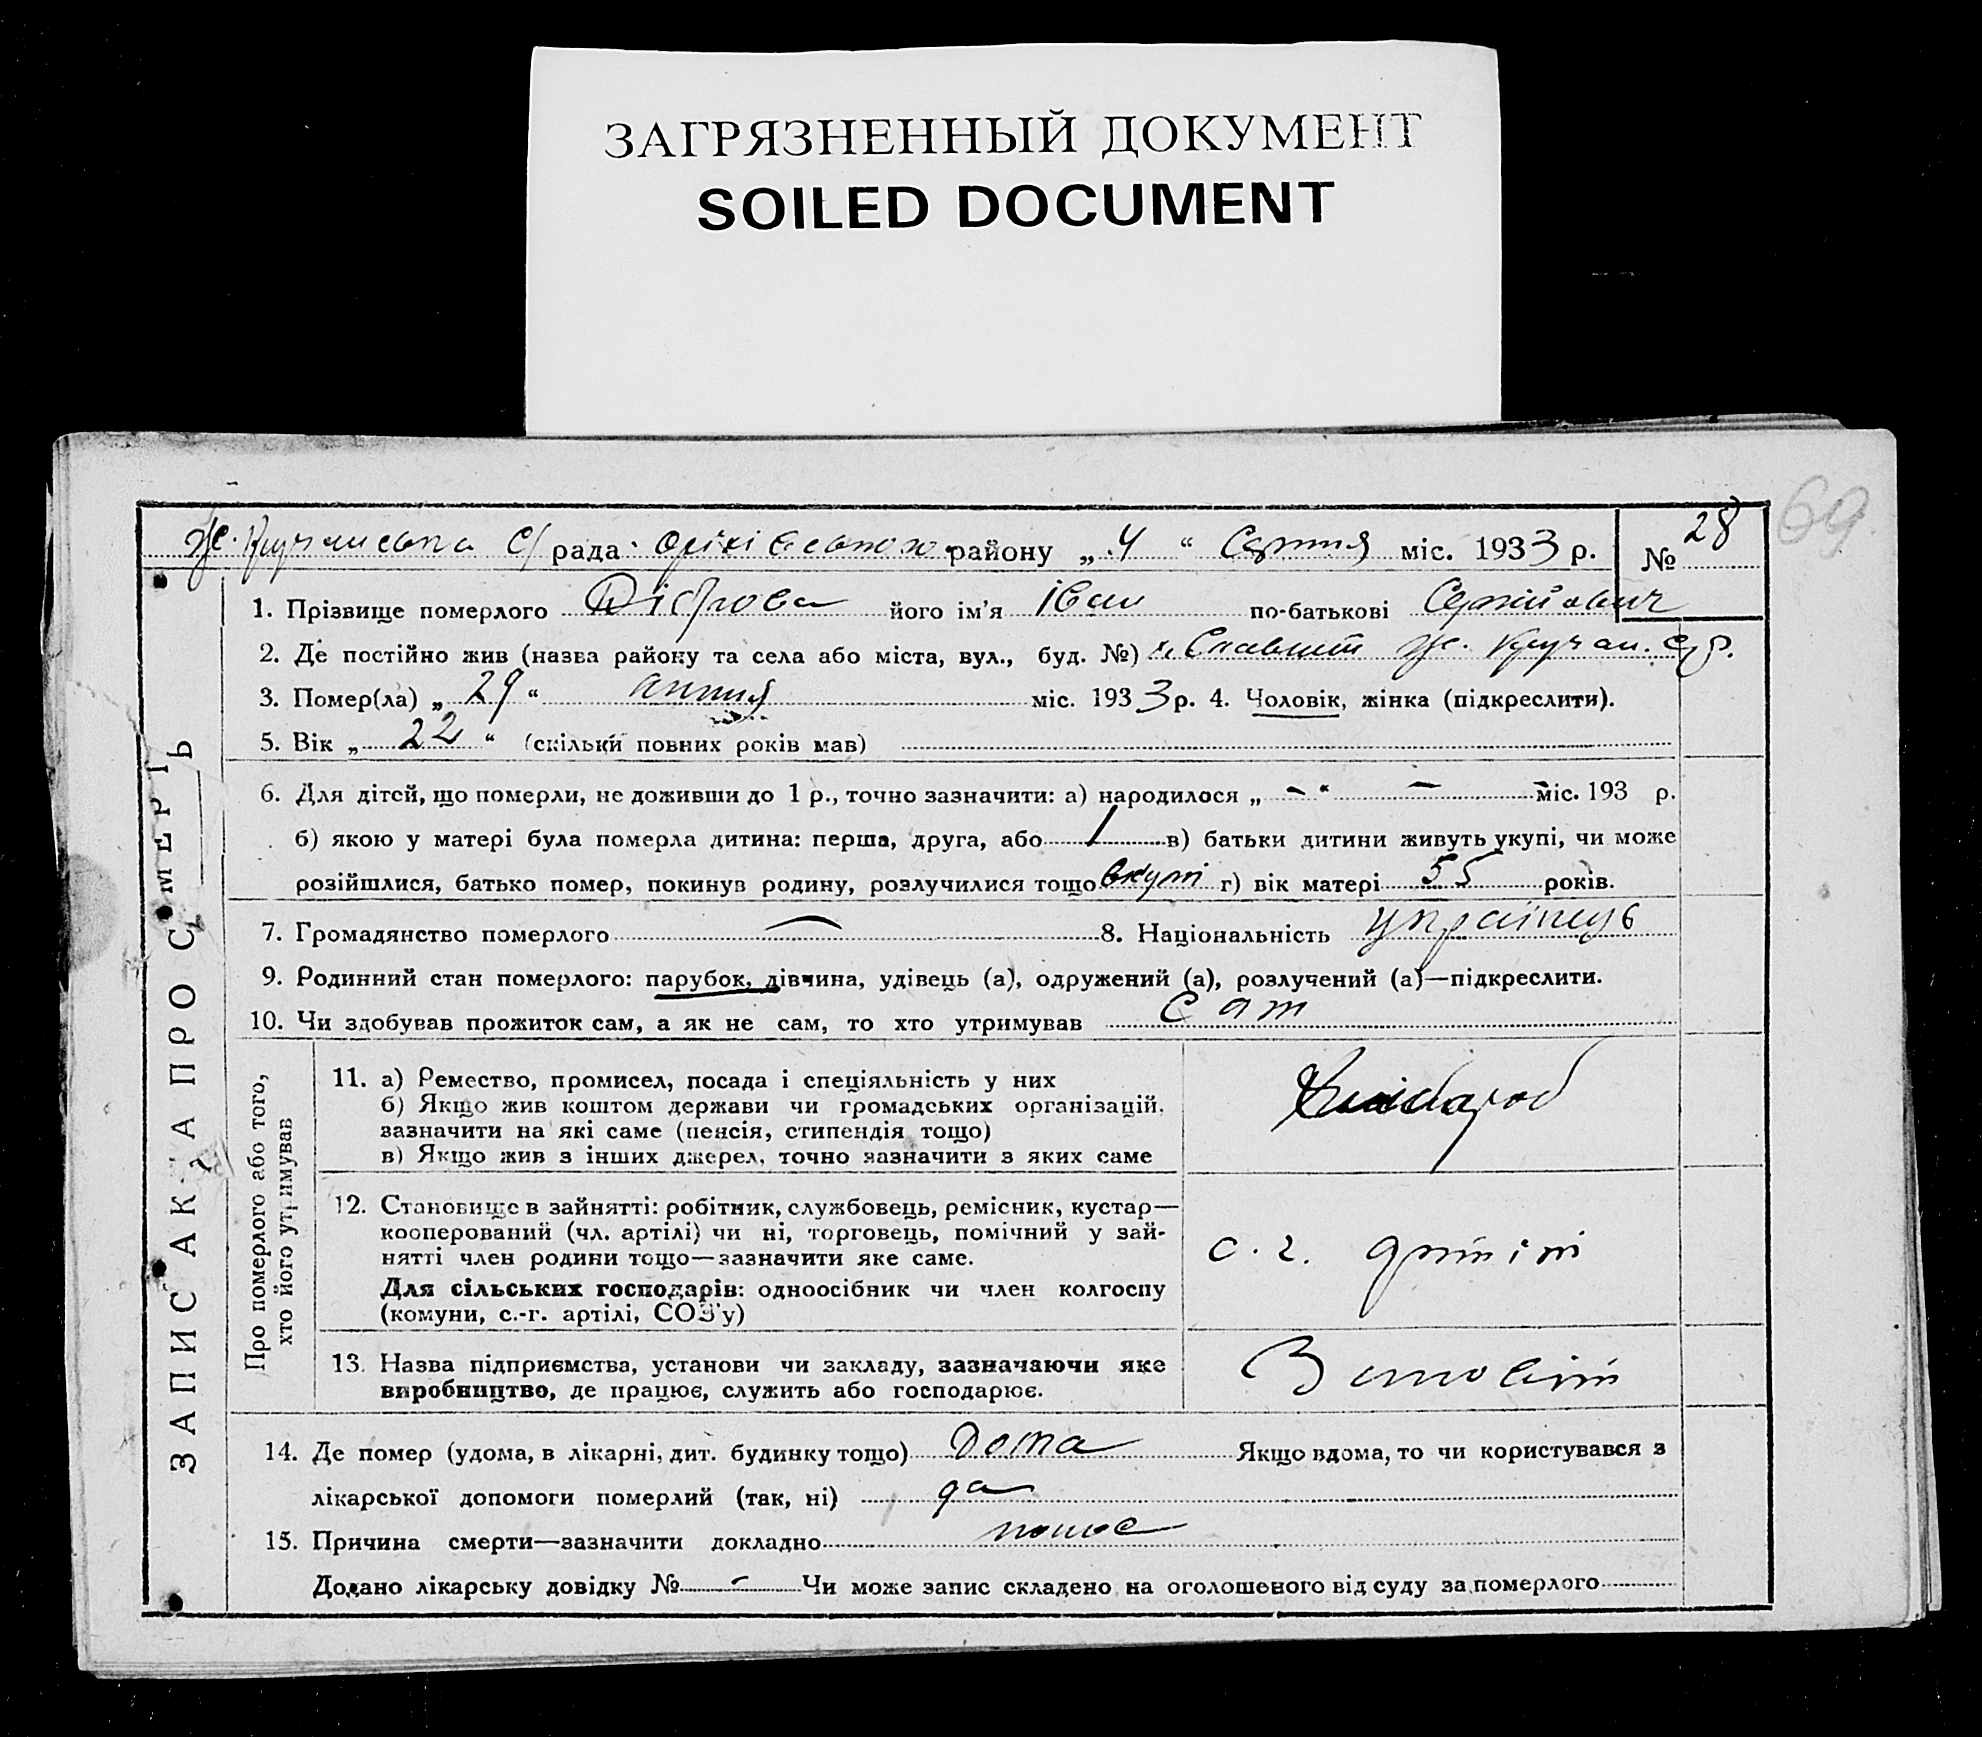 ЗАГРЯЗНЕННЫЙ ДОКУМЕНТ
SOILED DOCUMENT
69
С/рада району „ 4 “ Серпня міс. 1933 р. № 28
1. Прізвище померлого Діброва його ім’я Іван по-батькові Сергійович
2. Де постійно жив (назва району та села або міста, вул., буд. №)
3. Помер(ла) „ 29 “ липня міс. 1933 р. 4. Чоловік, жінка (підкреслити).
5. Вік „ 22 “ (скільки повних років мав)
6. Для дітей, що померли, не доживши до 1 р., точно зазначити: а) народилося „ - “ - міс. 193 р.
б) якою у матері була померла дитина: перша, друга, або в) батьки дитини живуть укупі, чи може
розійшлися, батько помер, покинув родину, розлучилися тощо вкупі г) вік матері 55 років.
7. Громадянство померлого — 8. Національність українць
9. Родинний стан померлого: парубок, дівчина, удівець (а), одружений (а), розлучений (а)—підкреслити.
10. Чи здобував прожиток сам, а як не сам, то хто утримував сам
ЗАПИСКА ПРО СМЕРТЬ
Про померлого або того,
хто його утримував
11. а) Ремество, промисел, посада і спеціяльність у них
б) Якщо жив коштом держави чи громадських організацій,
зазначити на які саме (пенсія, стипендія тощо)
в) Якщо жив з інших джерел, точно зазначити з яких саме
Хлібороб
12. Становище в зайнятті: робітник, службовець, ремісник, кустар—
кооперований (чл. артілі) чи ні, торговець, помічний у зай-
нятті член родини тощо—зазначити яке саме.
Для сільських господарів: одноосібник чи член колгоспу
(комуни, с.-г. артілі, СОЗ’у)
с. г. артілі
13. Назва підприємства, установи чи закладу, зазначаючи яке
виробництво, де працює, служить або господарює.
14. Де помер (удома, в лікарні, дит. будинку тощо) Дома Якщо вдома, то чи користувався з
лікарської допомоги померлий (так, ні) да
15. Причина смерти—зазначити докладно понос
Додано лікарську довідку № - Чи може запис складено на оголошеного від суду за померлого